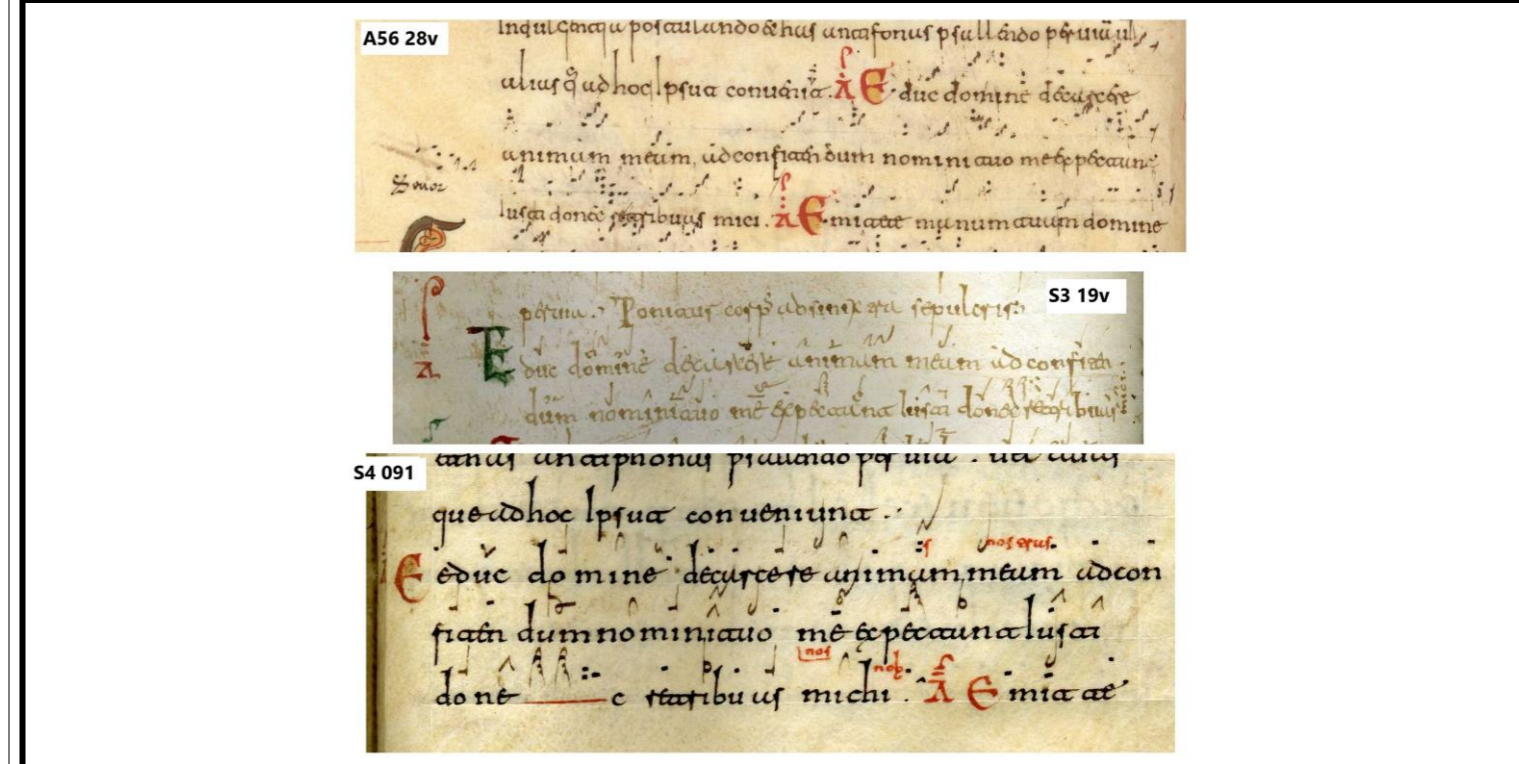 A56 28v
postulando & has antifonas psallendo
alias q̄ ad hoc ipsut A Educ domine de carcere
animam meam, ad confitendum nomini tuo me expectant
iusti donec retribuas mici. A Emitte manum tuam domine
S3 19v
Educ domine de carcere animam meam ad confiten
dum nomini tuo me expectant iusti donec retribuas mici
S4 091
antiphonas psallendo per uia . uel alias
que ad hoc ipsut conueniunt .
nos erus
E educ domine de carcere animam meam ad con
fiten dum nomini tuo me expectant iusti
nos nob
done c retribuas michi . A Emitte